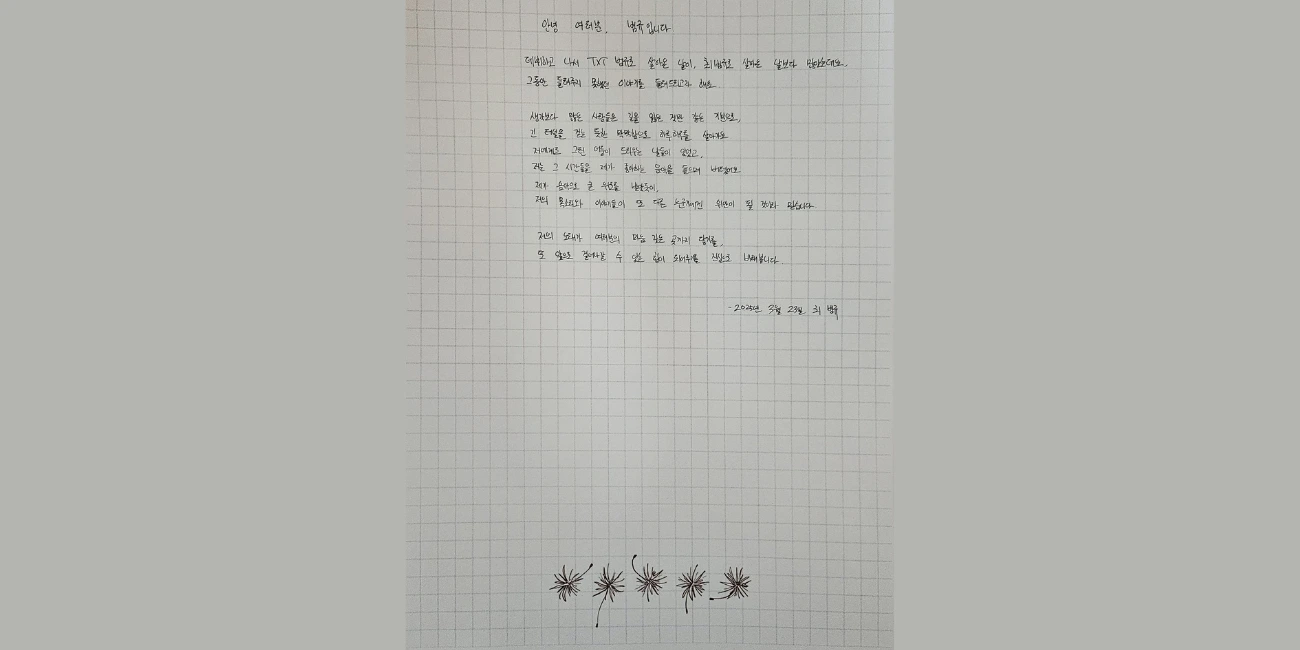 안녕 여러분, 범규입니다
데뷔하고 나서 TXT 범규로 살아온 날이, 최범규로 살아온 날보다 많았는데요.
그동안 들려주지 못했던 이야기를 들려드리고자 해요.
생각보다 많은 사람들은 길을 잃은 것만 같은 기분으로,
긴 터널을 걷는 듯한 막막함으로 하루하루를 살아가요
저에게도 그런 어둠이 드리우는 날들이 있었고,
저는 그 시간들을 제가 좋아하는 음악을 들으며 버텼어요
제가 음악으로 큰 위로를 받았듯이,
저의 목소리와 이야기들이 또 다른 누군가에겐 위안이 될 것이라 믿습니다
저의 노래가 여러분의 마음 깊은 곳까지 닿기를,
또 앞으로 걸어나갈 수 있는 힘이 되어주기를 진심으로 바래봅니다.
- 3월 23일 최 범규